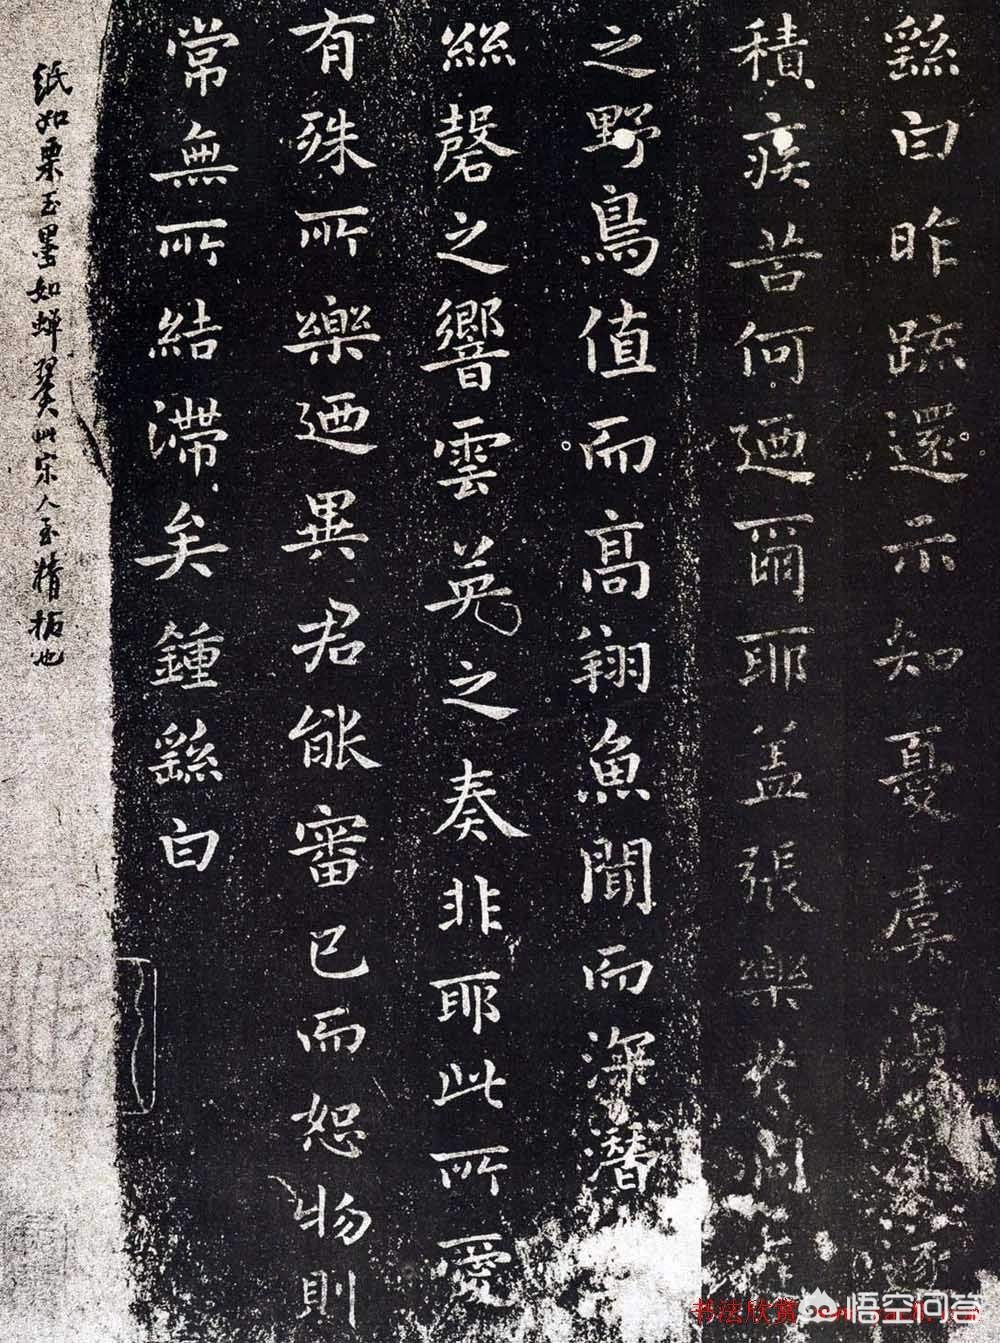 繇白昨疏還示知憂虞復深遂
積疾苦何迺爾耶盖張樂於洞
之野鳥值而高翔魚聞而深潛
絲磬之響雲英之奏非耶此所愛
有殊所樂迺異君能審已而恕物則
常無所結滯矣鍾繇白
紙如栗玉墨如蟬翼此宋人至精拓也
书法欣赏
悟空问答